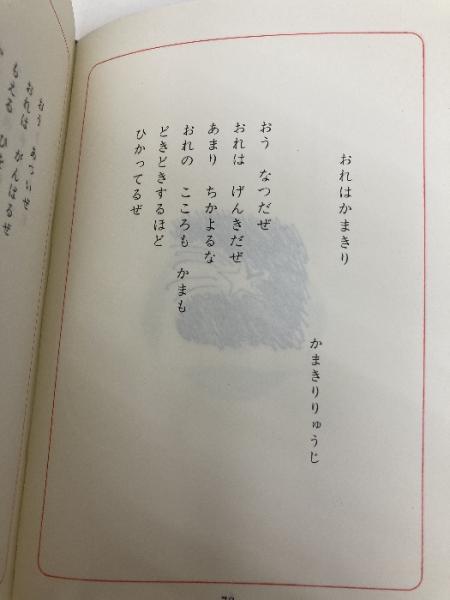 おれはかまきり
かまきりりゅうじ
おう なつだぜ
おれは げんきだぜ
あまり ちかよるな
おれの こころも かまも
どきどきするほど
ひかってるぜ
おう あついぜ
おれは がんばるぜ
もえる